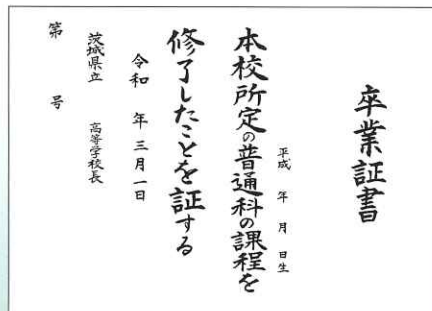 卒業証書
平成 年 月 日生
本校所定の普通科の課程を
修了したことを証する
令和 年 三月一日
茨城県立 高等学校長
第 号